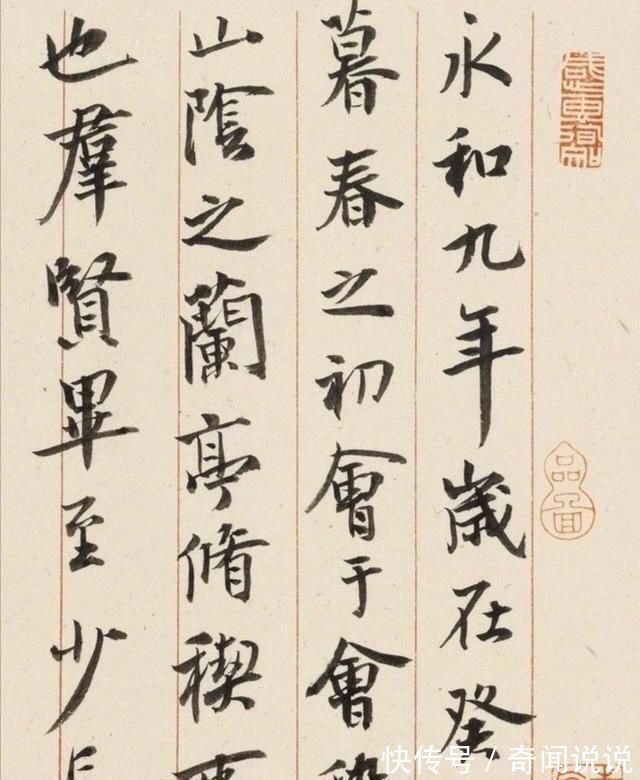 永和九年歲在癸
暮春之初會于會
山陰之蘭亭脩稧
也羣賢畢至少
快传号/奇闻说说